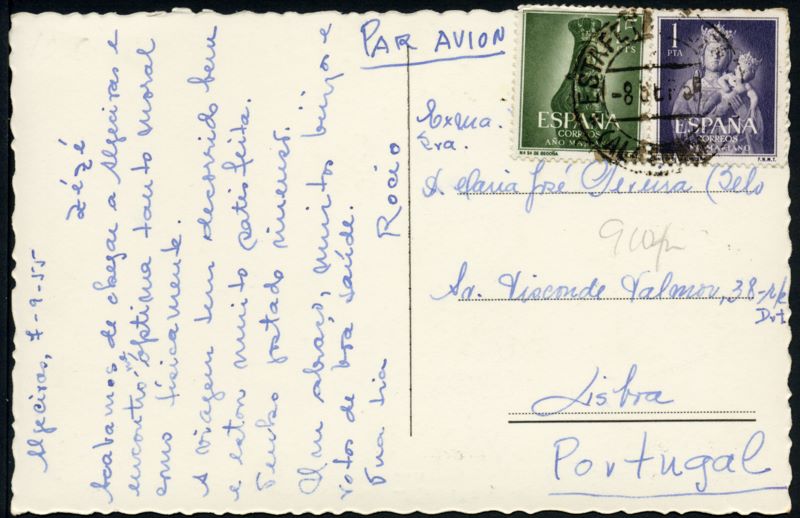 Algeciras, 7-9-55
Zézé
Acabamos de chegar a Algeciras e
encontro-me óptima tanto moral
como fisicamente.
A viagem tem decorrido bem
e estou muito satisfeita.
Tenho gostado imenso.
Um abraço, muitos beijos e
votos de boa saúde.
Tua tia
Rocío
PAR AVION
PTS
ESPAÑA
CORREOS
AÑO MARIANO
1
PTA
ESPAÑA
CORREOS
AÑO MARIANO
F.N.M.T.
Exma.
Sra.
D. Maria José Pereira Belo
Av. Visconde Valmor, 38-r/c
Drt
Lisboa
Portugal